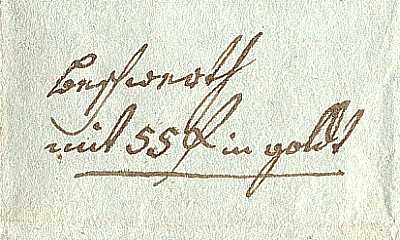 beschwerth
mit 55 f in goldt